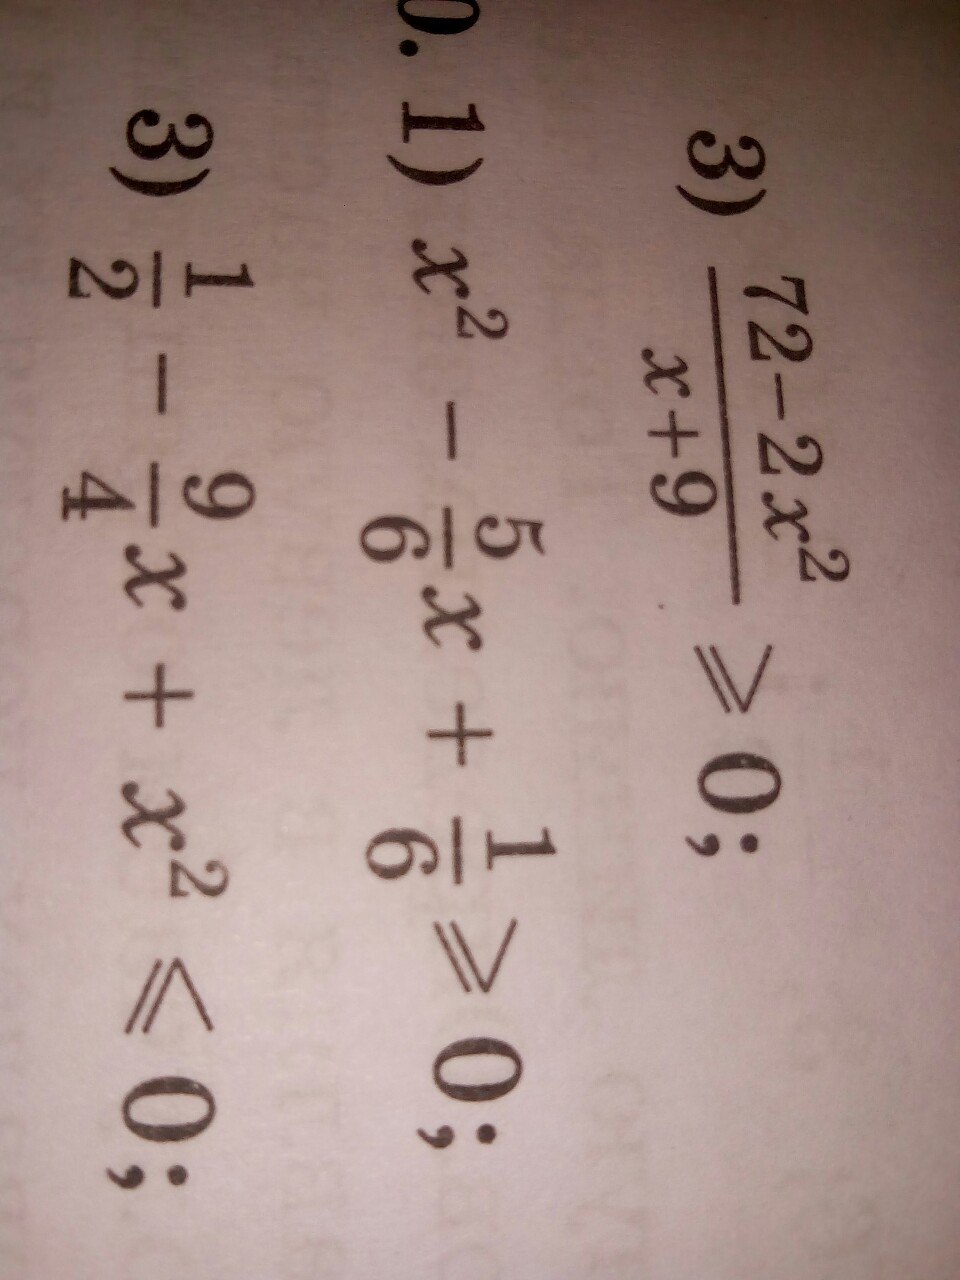 3) \frac{72-2x^2}{x+9} ⩾ 0;
0. 1) x^2 - \frac{5}{6}x + \frac{1}{6} ⩾ 0;
3) \frac{1}{2} - \frac{9}{4}x + x^2 ⩽ 0;